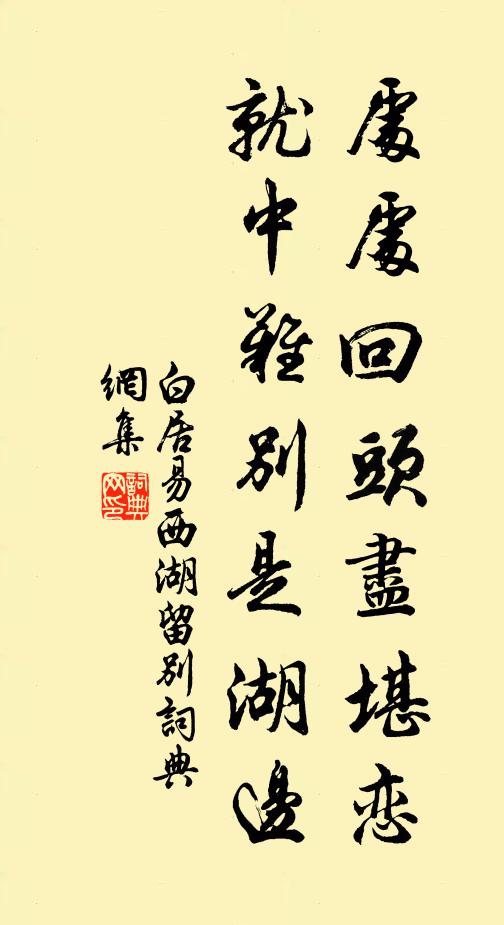 處處回頭盡堪恋
就中難別是湖邊
白居易西湖留別詞典
網集
詞典
网印